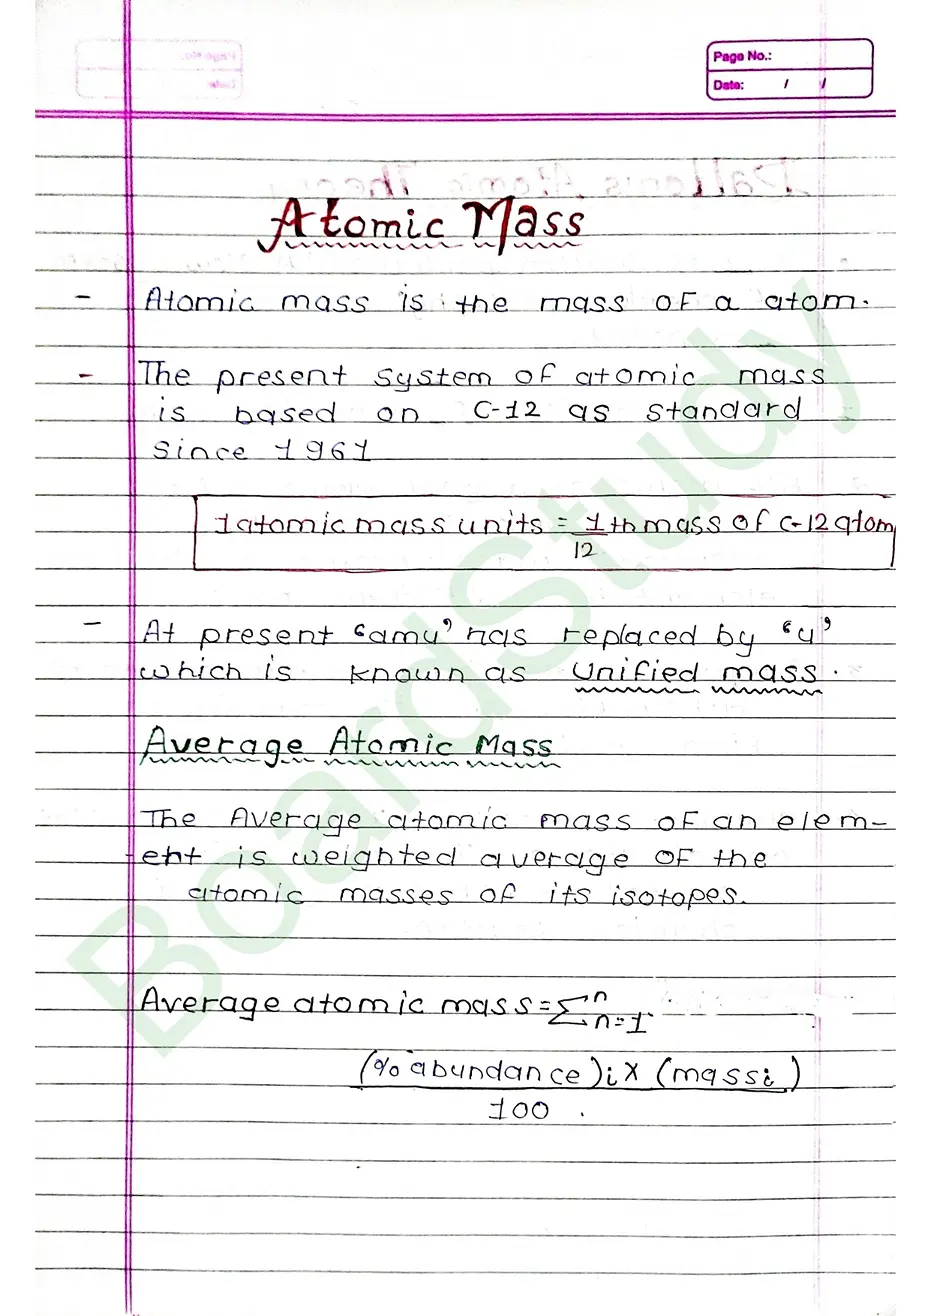 Page No.:
Date: / /
Atomic Mass
- Atomic mass is the mass of a atom.
- The present system of atomic mass
is based on C-12 as standard
Since 1961
1 atomic mass units = 1/12 th mass of C-12 atom
- At present 'amu' has replaced by 'u'
which is known as unified mass.
Average Atomic Mass
The Average atomic mass of an elem-
ent is weighted average of the
atomic masses of its isotopes.
Average atomic mass = Σ n n=1
(% abundance)i x (massi)
100.
BoardStudy